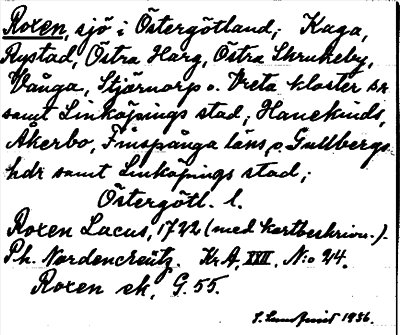 Roxen, sjö i Östergötland; Kaga,
Rystad, Östra Harg, Östra Skrukeby,
Vånga, Stjärnorp o. Vreta kloster sr
samt Linköpings stad; Hanekinds,
Åkerbo, Finspånga läns, o. Gullbergs
hdr samt Linköpings stad;
Östergötl. l.
Roxen Lacus, 1722 (med kartbeskrivn.).
Ph. Nordencreutz. Kr A, XXII. N:o 24.
Roxen ek, G. 55.
S. Lundqvist 1936.